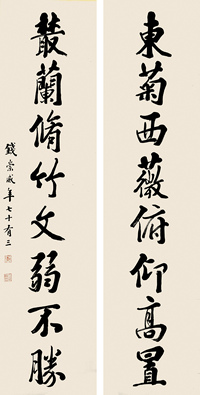 東菊西薇俯仰高置
叢蘭脩竹文弱不勝
錢崇威年七十有三